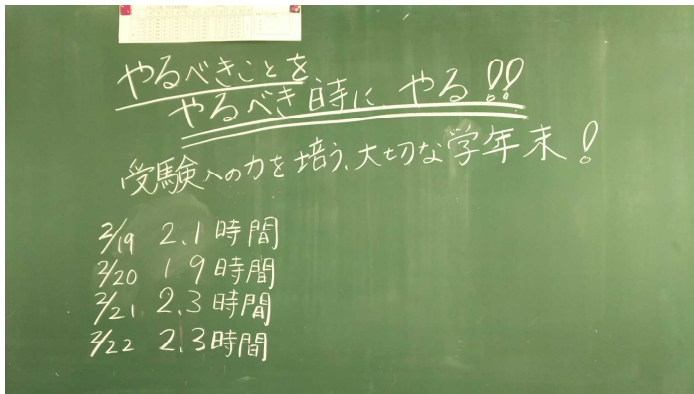 やるべきことを
やるべき時に やる!!
受験への力を培う、大切な学年末!
2/19 2.1時間
2/20 1 9時間
2/21 2.3時間
2/22 2.3時間